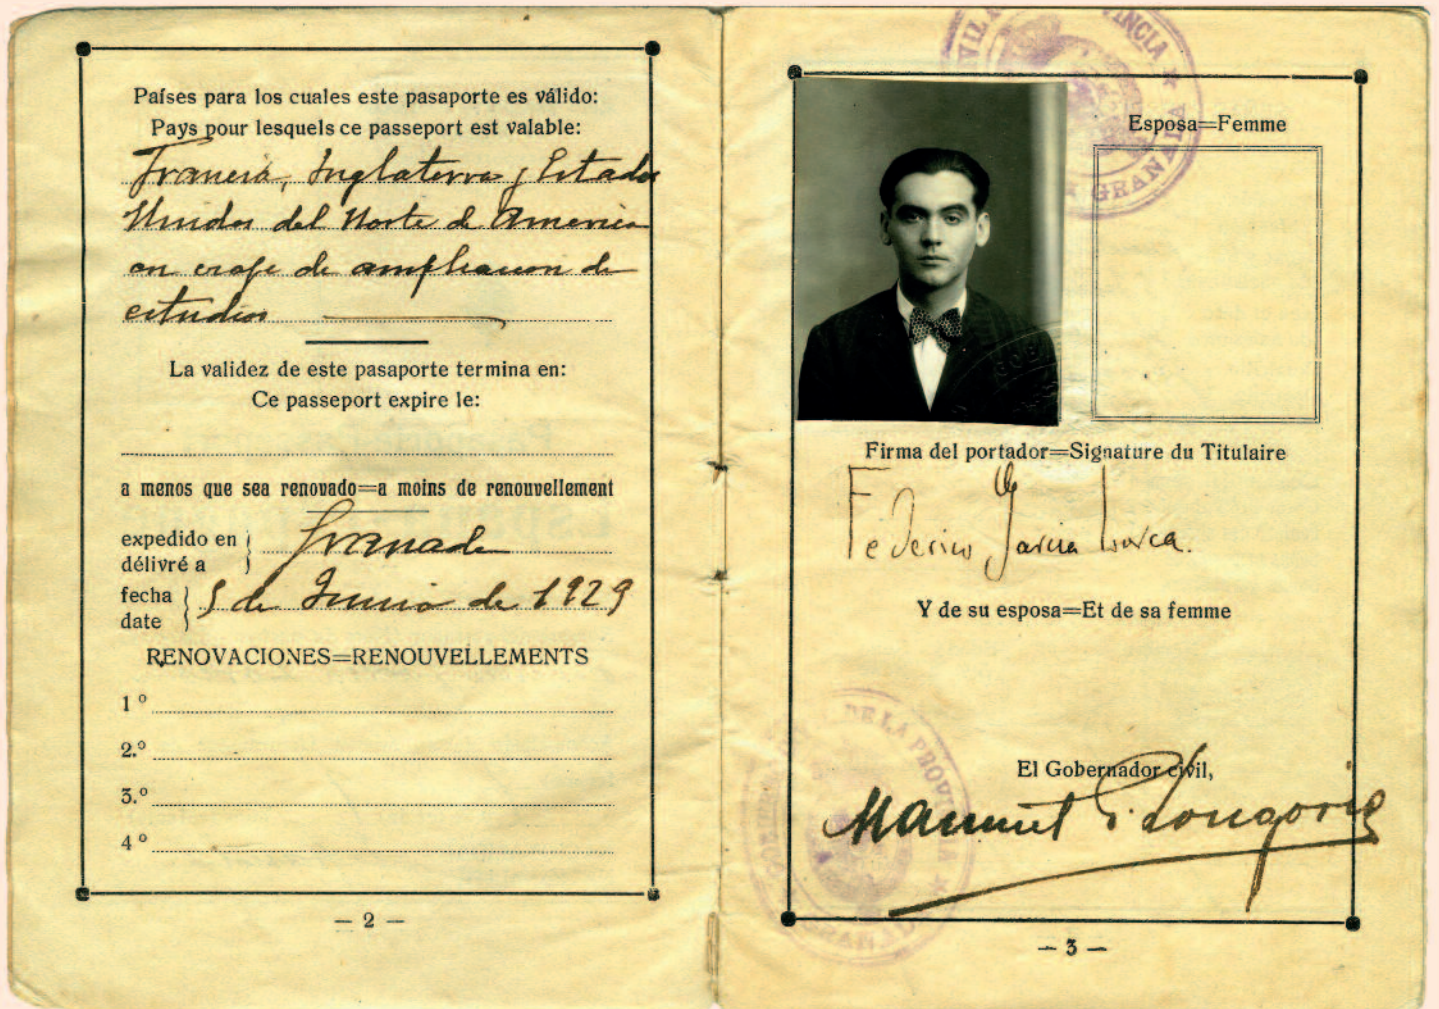 Países para los cuales este pasaporte es válido:
Pays pour lesquels ce passeport est valable:
Francia, Inglaterra y Estados
Unidos del Norte de America
en viaje de ampliacion de
estudios
La validez de este pasaporte termina en:
Ce passeport expire le:
a menos que sea renovado=a moins de renouvellement
expedido en
délivré a
Granada
fecha
date
5 de Junio de 1929
RENOVACIONES=RENOUVELLEMENTS
1º
2.º
3.º
4º
— 2 —
VIL PROVINCIA ★
GRANADA
Esposa=Femme
GOB
Firma del portador=Signature du Titulaire
Federico García Lorca.
Y de su esposa=Et de sa femme
DE LA PROVINCIA ★
GRANADA
El Gobernador civil,
Manuel Longoria
— 3 —